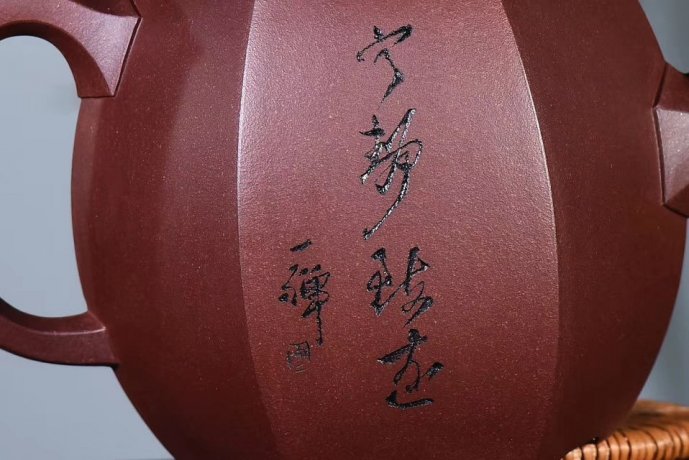 宁静致远
一禅